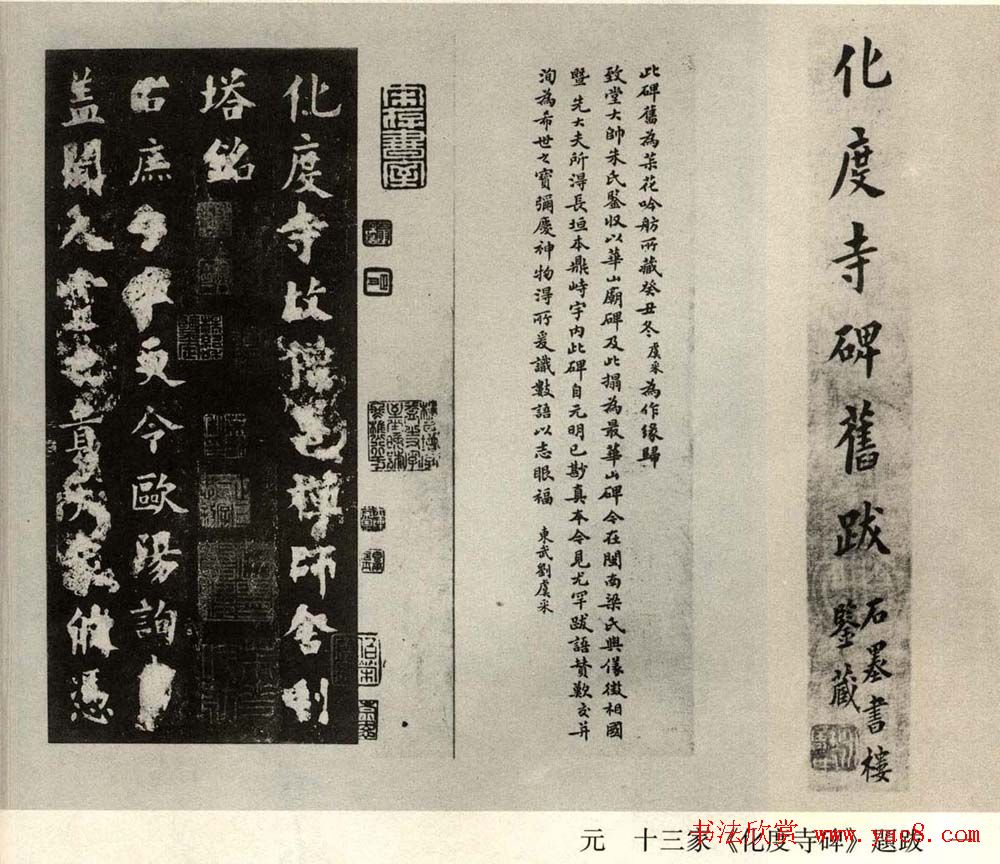 化度寺碑舊跋
石墨書樓
鑒藏
此碑舊為菜花吟舫所藏癸丑冬虞采為作緣歸
致堂大帥朱氏鑒收以華山廟碑及此搨為最華山碑今在閩南梁氏與儀徵相國
暨先大夫所得長垣本鼎峙宇内此碑自元明已尠真本今見尤罕跋語贊歎交并
洵為希世之寶彌慶神物得所爰識數語以志眼福 東武劉虞采
化度寺故僧邕禪師舍利
塔銘
右庶子李 今歐陽詢
蓋聞人靈之貴天象攸憑
元 十三家《化度寺碑》題跋
书法欣赏 www.yac8.com